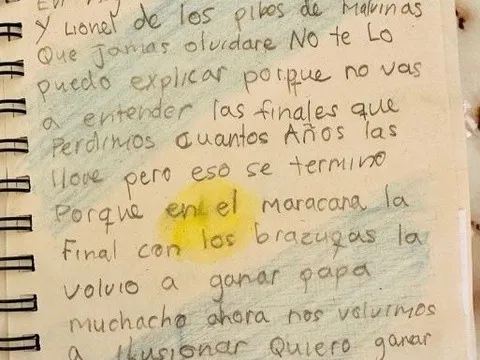 Y Lionel de los pibes de Malvinas
Que jamas olvidare No te Lo
puedo explicar porque no vas
a entender las finales que
Perdimos cuantos Años las
llore pero eso se termino
Porque en el maracana la
final con los brazucas la
volvio a ganar papa
muchacho ahora nos volvimos
a ilusionar Quiero ganar